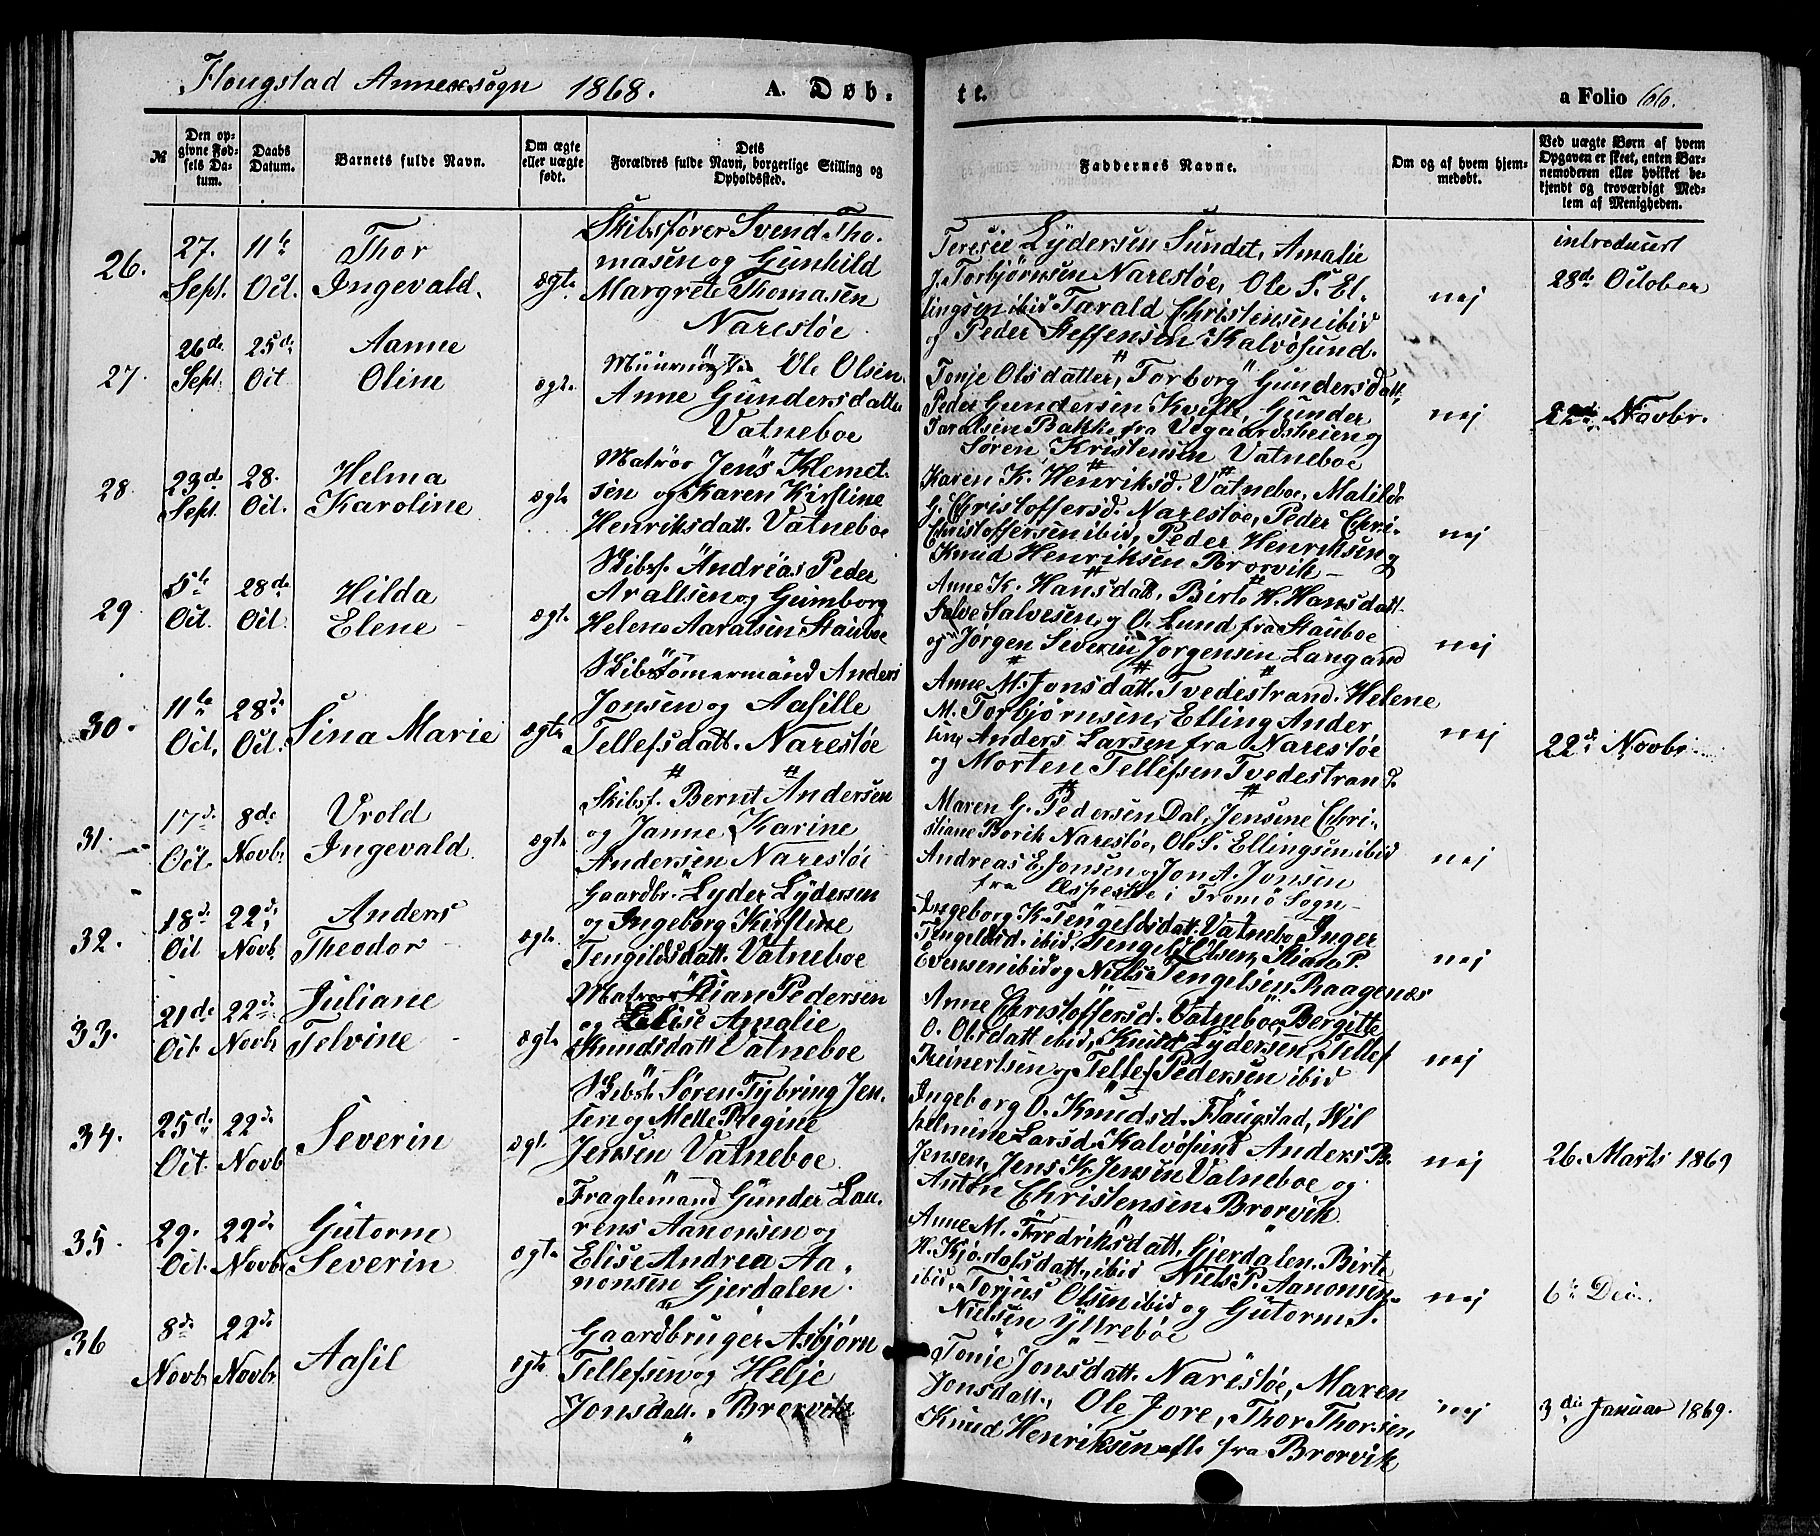 Flougstad Annexsogn 1868. A. Døb-
te. a Folio 66.
№
Den op-
givne Fød-
sels Da-
tum.
Daabs
Datum.
Barnets fulde Navn.
Om ægte
eller uægte
født.
Dets
Forældres fulde Navn, borgerlige Stilling og
Opholdssted.
Faddernes Navne.
Om og af hvem hjem-
medøbt.
Ved uægte Børn af hvem
Opgaven er skeet, enten Bar-
nemoderen eller hvilket be-
kjendt og troværdigt Med-
lem af Menigheden.
26.
27.
Sept.
11te
Oct.
Thor
Ingevald.
ægte.
Skibsfører Svend Tho-
masen og Gunhild
Margrete Thomasen
Narestøe
Teresie Lydersen Sundet, Amalie
J. Torbjørnsen Narestøe, Ole S. El-
lingsen ibid Tarald Christensen ibid
og Peder Steffensen Kalvøsund.
nej
introducert
28de October
27.
26de
Sept.
25de
Oct
Aanne
Oline
ægte
Ole Olsen.
Anne Gundersdatter
Vatneboe
Tonje Olsdatter, Torborg Gundersdatt,
Peder Gundersen Kvifte, Gunder
Taralsen Bakke fra Vegaardsheien og
Søren Kristensen Vatneboe
nej
22de Novbr.
28.
23de
Sept.
28.
Oct.
Helma
Karoline
ægte
Matros Jens Klemet-
sen og Karen Kirstine
Henriksdatt. Vatneboe
Karen K. Henriksd. Vatneboe, Matilde
G. Christoffersd. Narestøe, Peder Chri-
Christoffersen ibid, Peder Henriksen og
Knud Henriksen Brorvik
nej
29
5te
Oct.
28de
Oct.
Hilda
Elene
ægte
Skibsf. Andreas Peder
Araltsen og Gumborg
Helene Aaralsen Stauboe
Anne K. Hansdatt, Birte H. Hansdatt.
Salve Salvesen og O. Lund fra Stauboe
og Jørgen Severin Jorgensen Langand
nej
30.
11te
Oct.
28de
Oct.
Sina Marie
ægte
Skibstømermand Anders
Jonsen og Aasille
Tellefsdatt. Narestøe
Anne M. Jonsdatt. Tvedestrand. Helene
M. Torbjørnsen, Elling Ander
sen, Anders Larsen fra Narestøe
og Morten Tellefsen Tvedestrand.
nej
22de Novbr.
31.
17de
Oct.
8de
Novbr
Vrold
Ingevald
ægte
Skibsf. Bernt Andersen
og Janne Karine
Andersen Narestøe
Maren G. Pedersen Dal, Jensine Chri-
stiane Borik Narestøe, Ole S. Ellingsen ibid
Andreas E. Jonsen og Jon A. Jonsen
fra i Tromö Sogn
nej
32.
18de
Oct
22de
Novb.
Anders
Theodor
ægte.
Gaardbr. Lyder Lydersen
og Ingeborg Kirstine
Tengildsdatt. Vatneboe
Ingeborg K. Tengeldsdatt. Vatneboe Inger
Tengeldsd. ibid. Tengel Olsen, Stian P.
Evensen ibid og Niels Tengelsen Raagenæs
nej
33.
21de
Oct
22de
Novbr
Juliane
Telvine
ægte
Matros Stian Pedersen
og Elise Amalie
Knudsdatt Vatneboe
Anne Christoffersd. Vatneboe, Bergitte
O. Olsdatt ibid, Knud Lydersen, Tellef
Reinertsen og Tellef Pedersen ibid
nej
34.
25de
Oct.
22de
Novb
Severin
ægt.
Skibst. Søren Tybring Jen-
sen og Mette Regine
Jensen Vatneboe
Ingeborg O. Knudsd. Flaugstad, Wil
helmine Larsd. Kalvøsund Anders B.
Jensen, Jens K. Jensen Vatneboe og
Anton Christensen Brorvik.
nej
26. Marts 1869
35.
29.
Oct.
22de
Novbr
Gutorm
Severin
ægte
Fragtemand Gunder Lau-
rens Aanonsen og
Elise Andrea Aa-
nonsen Gjerdalen.
Anne M. Fredriksdatt. Gjerdalen. Birte
H. Kjøstolsdatt. ibid Niels P. Aanonsen
ibid. Torjus Olsen ibid og Gutorm S.
Nielsen Yttrebøe
nej
6te Dec.
36
8de
Novbr
22de
Novbr.
Aasil
ægte
Gaardbruger Asbjørn
Tellefsen og Helje
Jonsdatt. Brorvik
Tonje Jonsdatt. Narestøe, Maren
Jonsdatt, Ole Jore, Thor Thorsen
Knud Henriksen alle fra Brorvik
nej
3die Januar 1869.